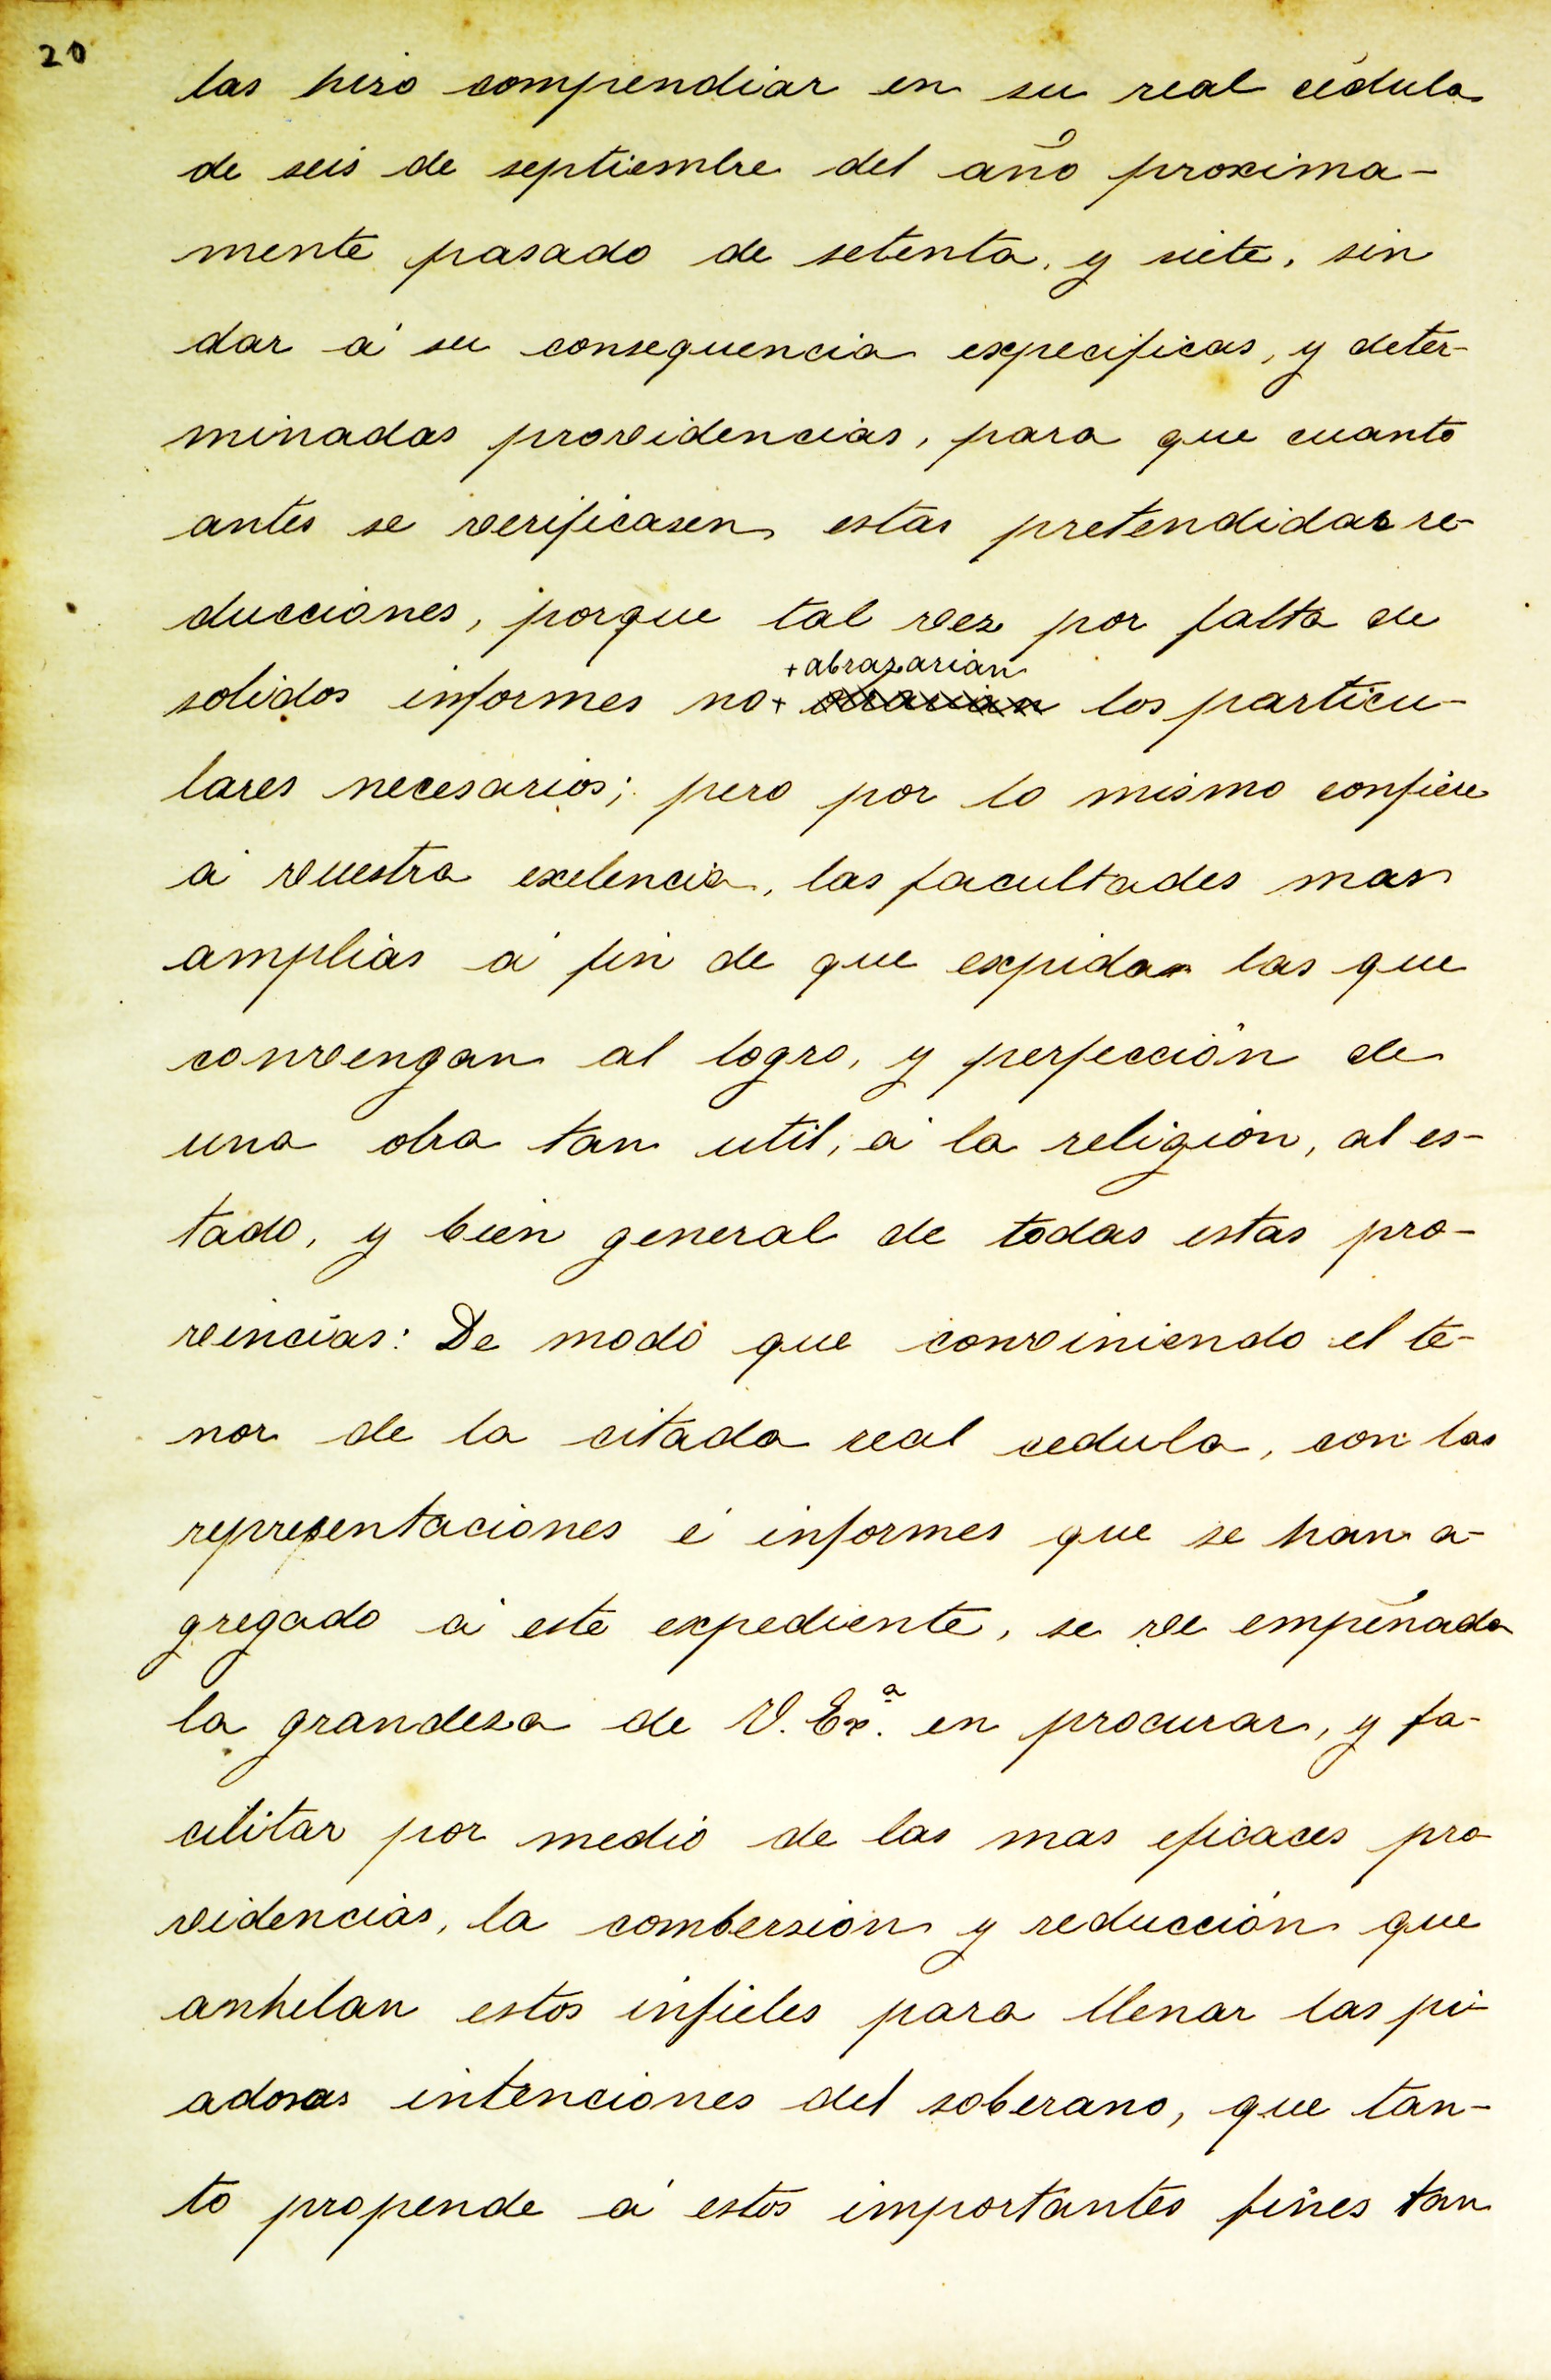 20
las hiso compendiar en su real cédula
de seis de septiembre del año proxima-
mente pasado de setenta, y siete, sin
dar á su consequencia expecificas, y deter-
minadas providencias, para que cuanto
antes se verificasen estas pretendidas re-
ducciones, porque tal vez por falta de
+abrazarian
solidos informes no+ los particu-
lares necesarios; pero por lo mismo confiere
á vuestra exelencia, las facultades mas
amplias á fin de que expidan las que
convengan al logro, y perfección de
una obra tan util, á la religion, al es-
tado, y bien general de todas estas pro-
vincias: De modo que conviniendo el te-
nor de la citada real cedula, con las
representaciones é informes que se han a-
gregado á este expediente, se ve empeñada
la grandesa de V. Exª. en procurar, y fa-
cilitar por medio de las mas eficaces pro-
videncias, la combersion y reducción que
anhelan estos infieles para llenar las pi-
adosas intenciones del soberano, que tan-
to propende á estos importantes fines tan